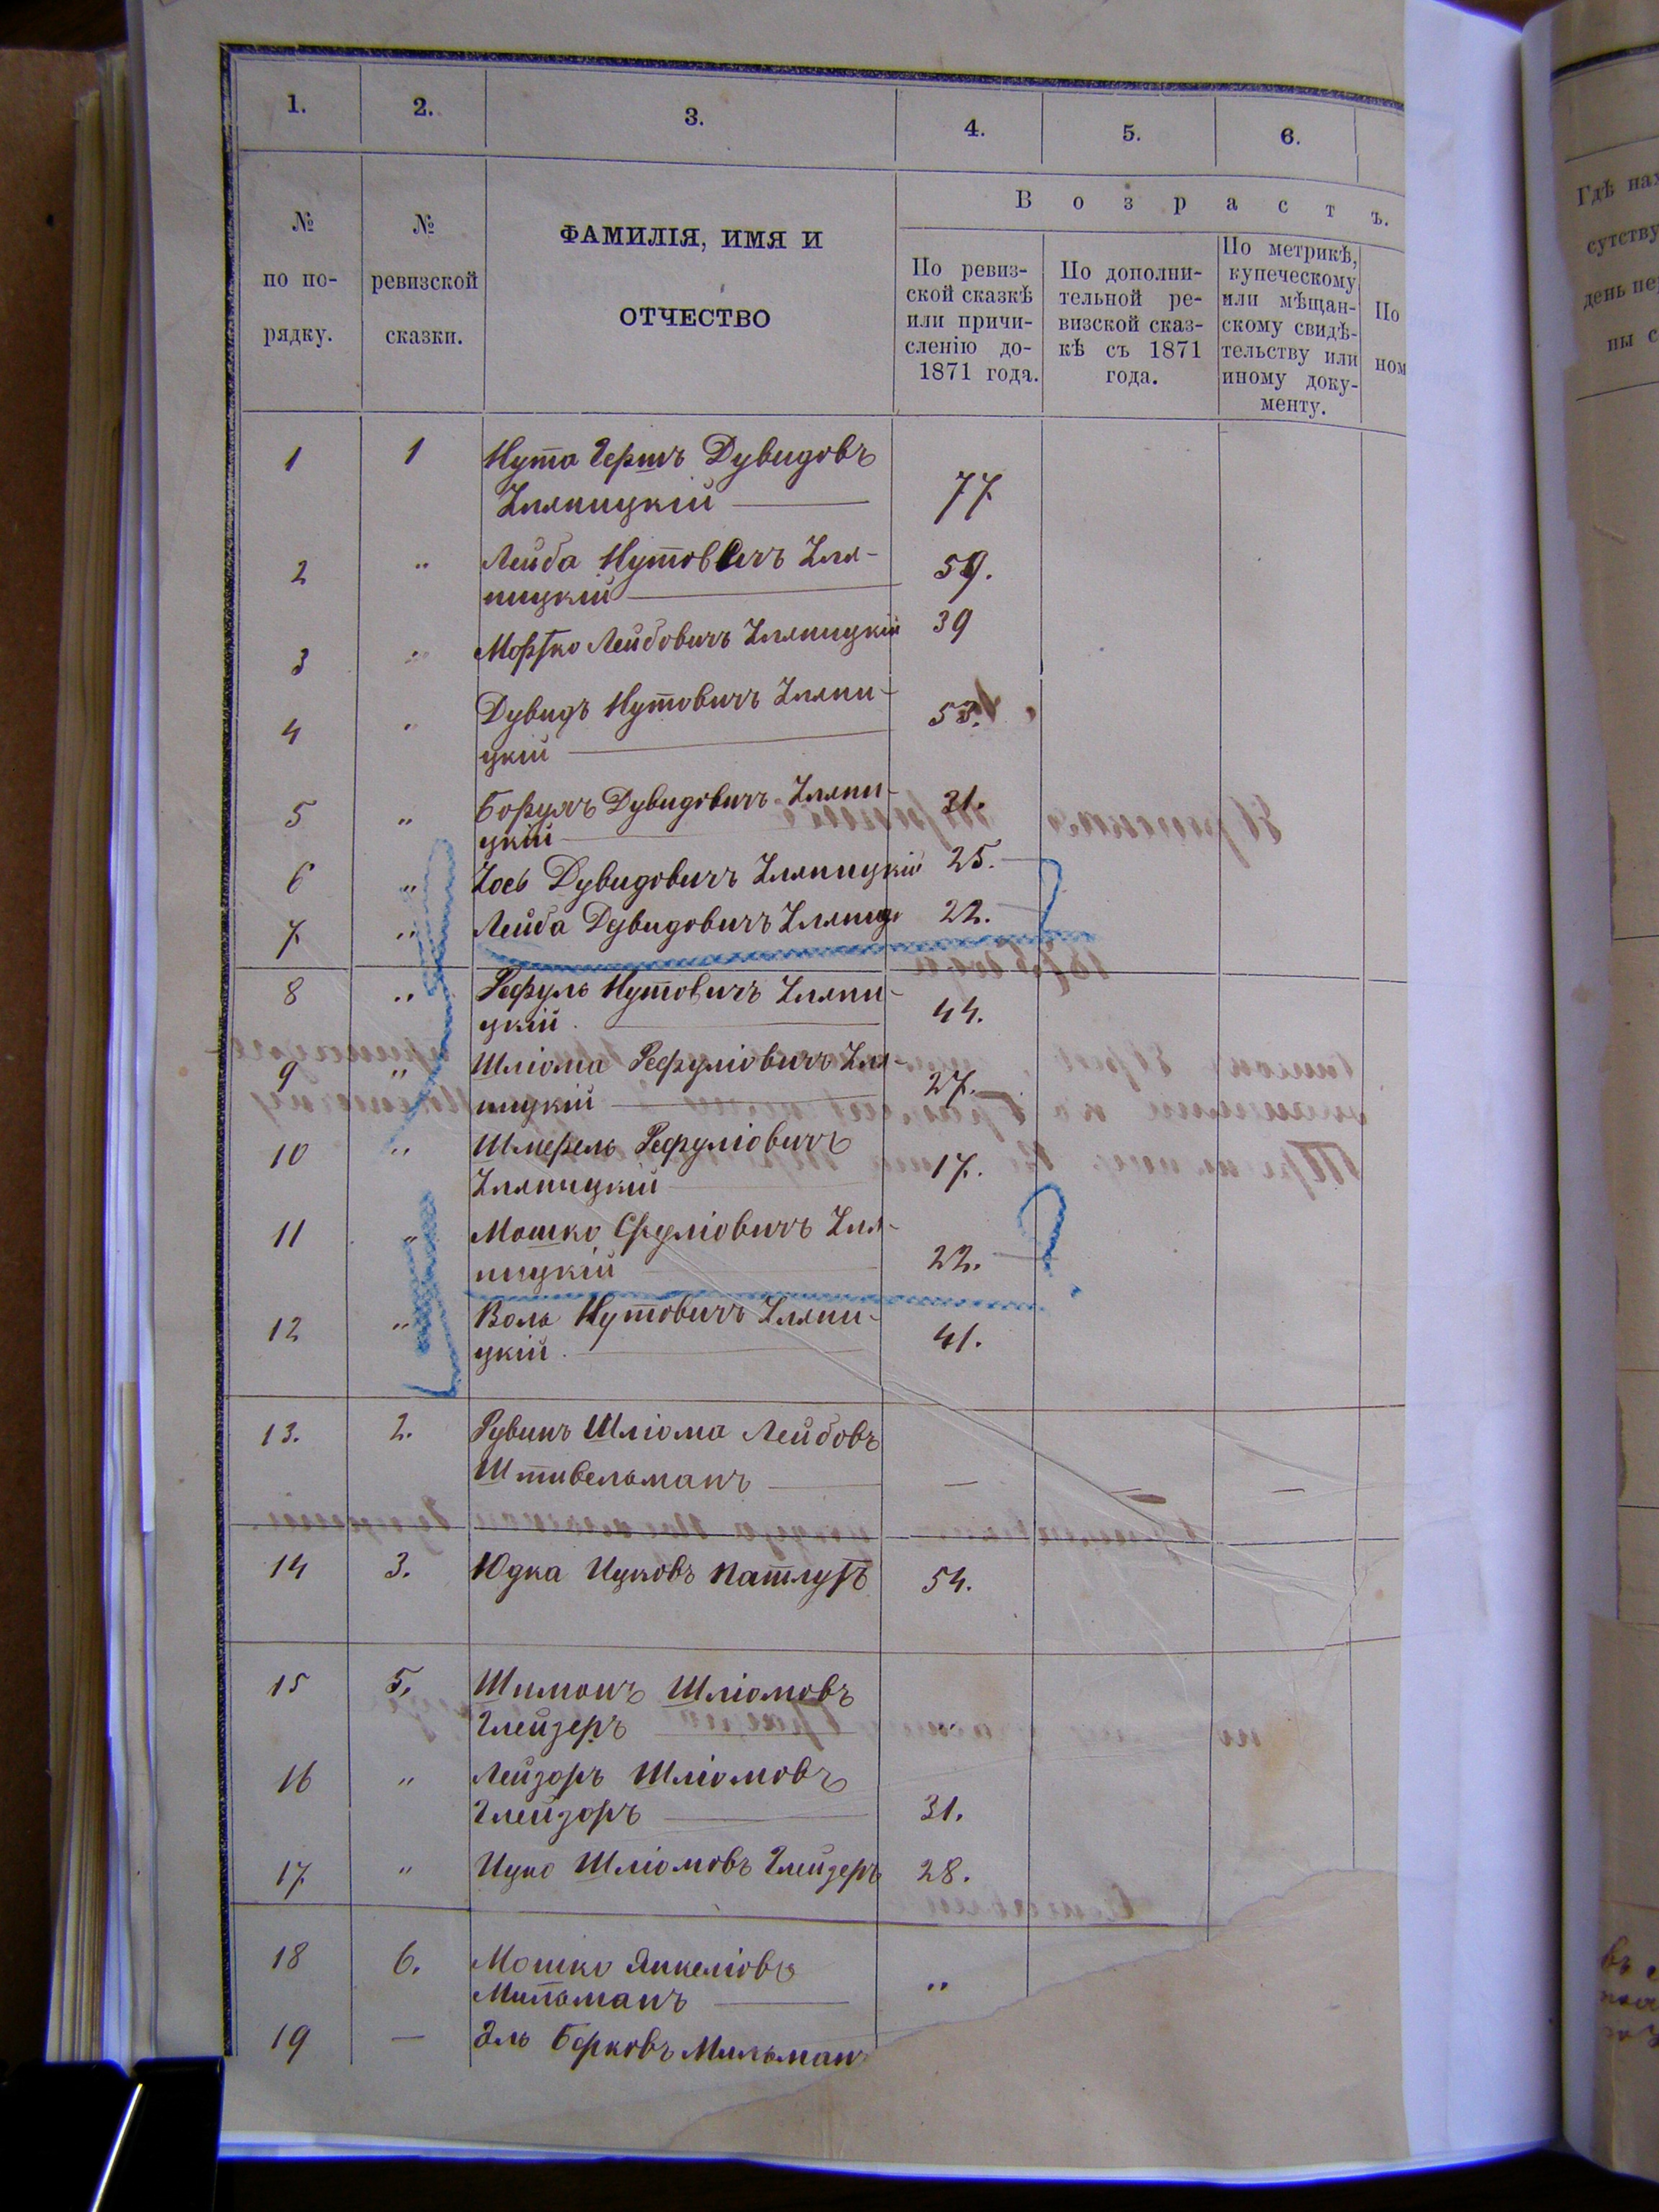 1. 2. 3. 4. 5. 6.
В о з р а с т ъ.
№ по по- рядку.
№ ревизской сказки.
ФАМИЛІЯ, ИМЯ И
ОТЧЕСТВО
По ревиз-
ской сказкѣ
или причи-
сленію до-
1871 года.
По дополни-
тельной ре-
визской сказ-
кѣ съ 1871
года.
По метрикѣ,
купеческому
или мѣщан-
скому свидѣ-
тельству или
иному доку-
менту.
По
ном
Гдѣ нах
сутству
день пе
ны с
1 1 Нута Гершъ Дувидовъ
Зляпицкій 77
2 " Лейба Нутовичъ Зля-
пицкій 59.
3 " Мортко Лейбовичъ Зляпицкій 39
4 " Дувидъ Нутовичъ Зляпи-
цкій 53.
5 " Борухъ Дувидовичъ Зляпи-
цкій 31.
6 " Зось Дувидовичъ Зляпицкій 25.
7 " Лейба Дувидовичъ Зляпиц 22.
8 " Рефуль Нутовичъ Зляпи-
цкій 44.
9 " Шліома Рефуліовичъ Зля-
пицкій 27.
10 " Шмерель Рефуліовичъ
Зляпицкій 17.
11 " Мошко Сруліовичъ Зля-
пицкій 22. ?
12 " Воль Нутовичъ Зляпи-
цкій 41.
13. 2. Рувинъ Шліома Лейбовъ
Штивельманъ — — —
14 3. Юдка Ицковъ Патлухъ 54.
15 5. Шимонъ Шліомовъ
Глейзеръ
16 " Лейзоръ Шліомовъ
Глейзоръ 31.
17 " Ицко Шліомовъ Глейзеръ 28.
18 6. Мошко Янкеліовъ
Мильманъ "
19 — Эль Берковъ Мильман